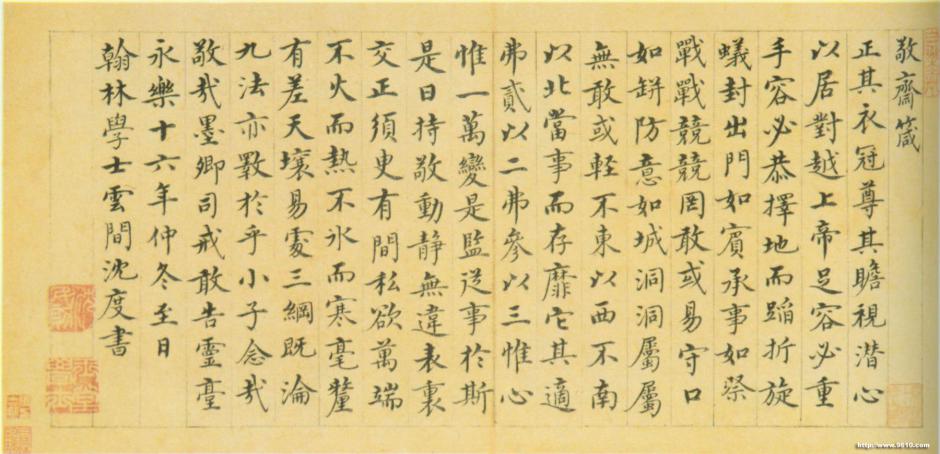 敬齋箴
正其衣冠尊其瞻視潜心
以居對越上帝足容必重
手容必恭擇地而蹈折旋
蟻封出門如賓承事如祭
戰戰兢兢罔敢或易守口
如缾防意如城洞洞屬屬
無敢或輕不東以西不南
以北當事而存靡它其適
弗貳以二弗參以三惟心
惟一萬變是監從事於斯
是曰持敬動静無違表裏
交正須臾有間私欲萬端
不火而熱不氷而寒毫釐
有差天壤易處三綱既淪
九法亦斁於乎小子念哉
敬哉墨卿司戒敢告靈臺
永樂十六年仲冬至日
翰林學士雲間沈度書
http://www.9610.com